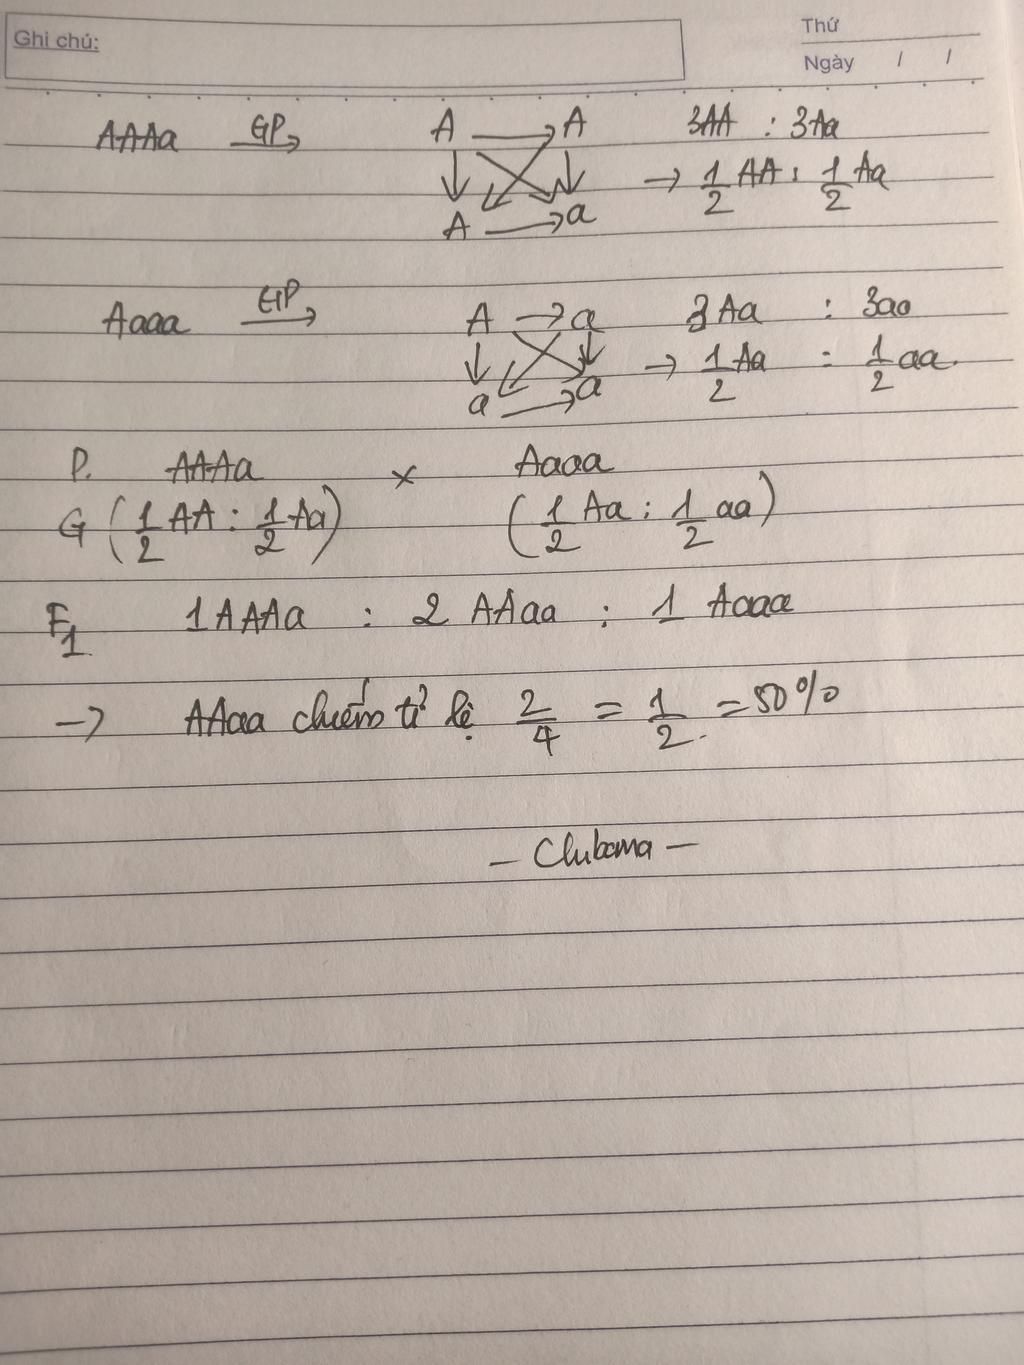 Ghi chú:
Thứ
Ngày / /
AAAa GP→ A → A 3AA : 3Aa
A → a → 1/2 AA : 1/2 Aa
Aaaa GP→ A → a 3Aa : 3aa
a → a → 1/2 Aa : 1/2 aa.
P. AAAa × Aaaa
G (1/2 AA : 1/2 Aa) (1/2 Aa : 1/2 aa)
F1 1AAAa : 2 AAaa : 1 Aaaa
→ AAaa chiếm tỉ lệ 2/4 = 1/2 = 50%